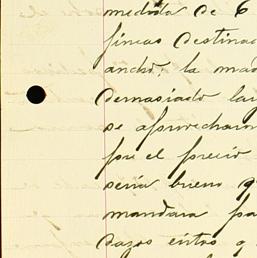 medida de 6
fincas destinad
ancho, la mad
demasiado lar
se aprovechara
por el precio
seria bueno q
mandara pa
dazos estos q